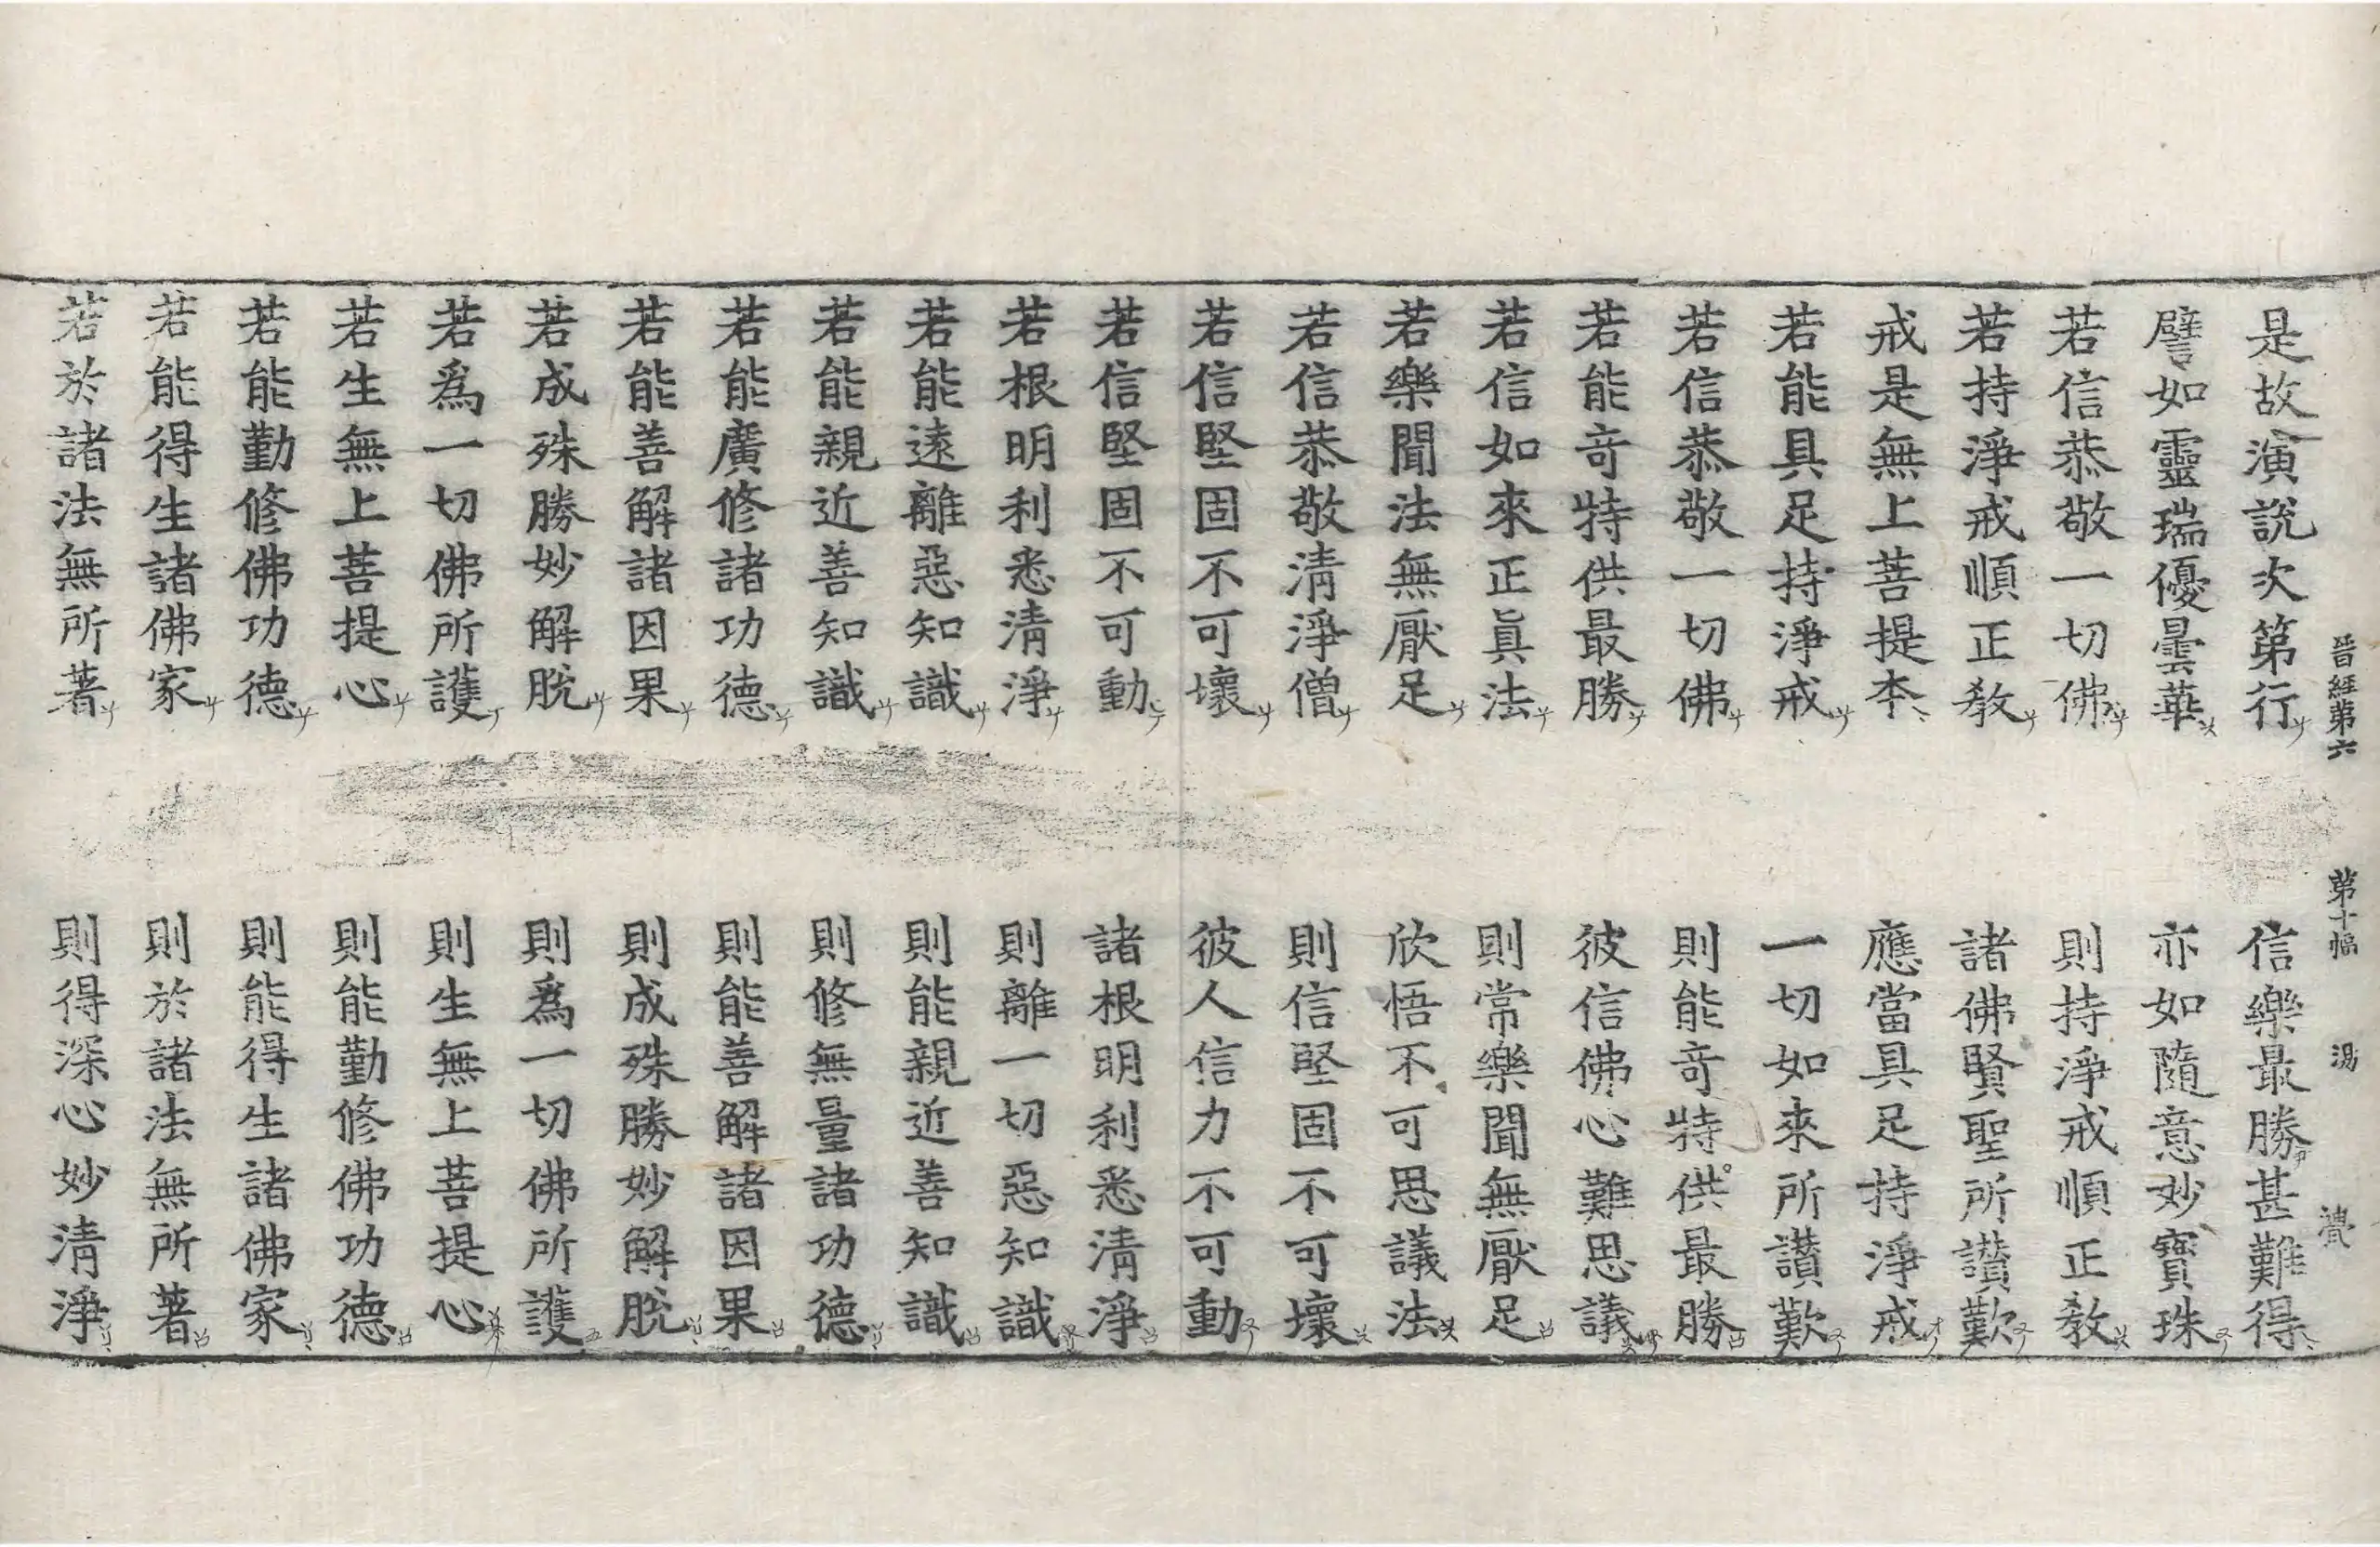 晉經第六 第十幅 湯
是故演說次第行 信樂最勝甚難得
譬如靈瑞優曇華 亦如隨意妙寶珠
若信恭敬一切佛 則持淨戒順正教
若持淨戒順正教 諸佛賢聖所讚歎
戒是無上菩提本 應當具足持淨戒
若能具足持淨戒 一切如來所讚歎
若信恭敬一切佛 則能竒特供最勝
若能竒特供最勝 彼信佛心難思議
若信如來正眞法 則常樂聞無厭足
若樂聞法無厭足 欣悟不可思議法
若信恭敬清淨僧 則信堅固不可壞
若信堅固不可壞 彼人信力不可動
若信堅固不可動 諸根明利悉清淨
若根明利悉清淨 則離一切惡知識
若能遠離惡知識 則能親近善知識
若能親近善知識 則修無量諸功德
若能廣修諸功德 則能善解諸因果
若能善解諸因果 則成殊勝妙解脫
若成殊勝妙解脫 則爲一切佛所護
若爲一切佛所護 則生無上菩提心
若生無上菩提心 則能勤修佛功德
若能勤修佛功德 則能得生諸佛家
若能得生諸佛家 則於諸法無所著
若於諸法無所著 則得深心妙清淨